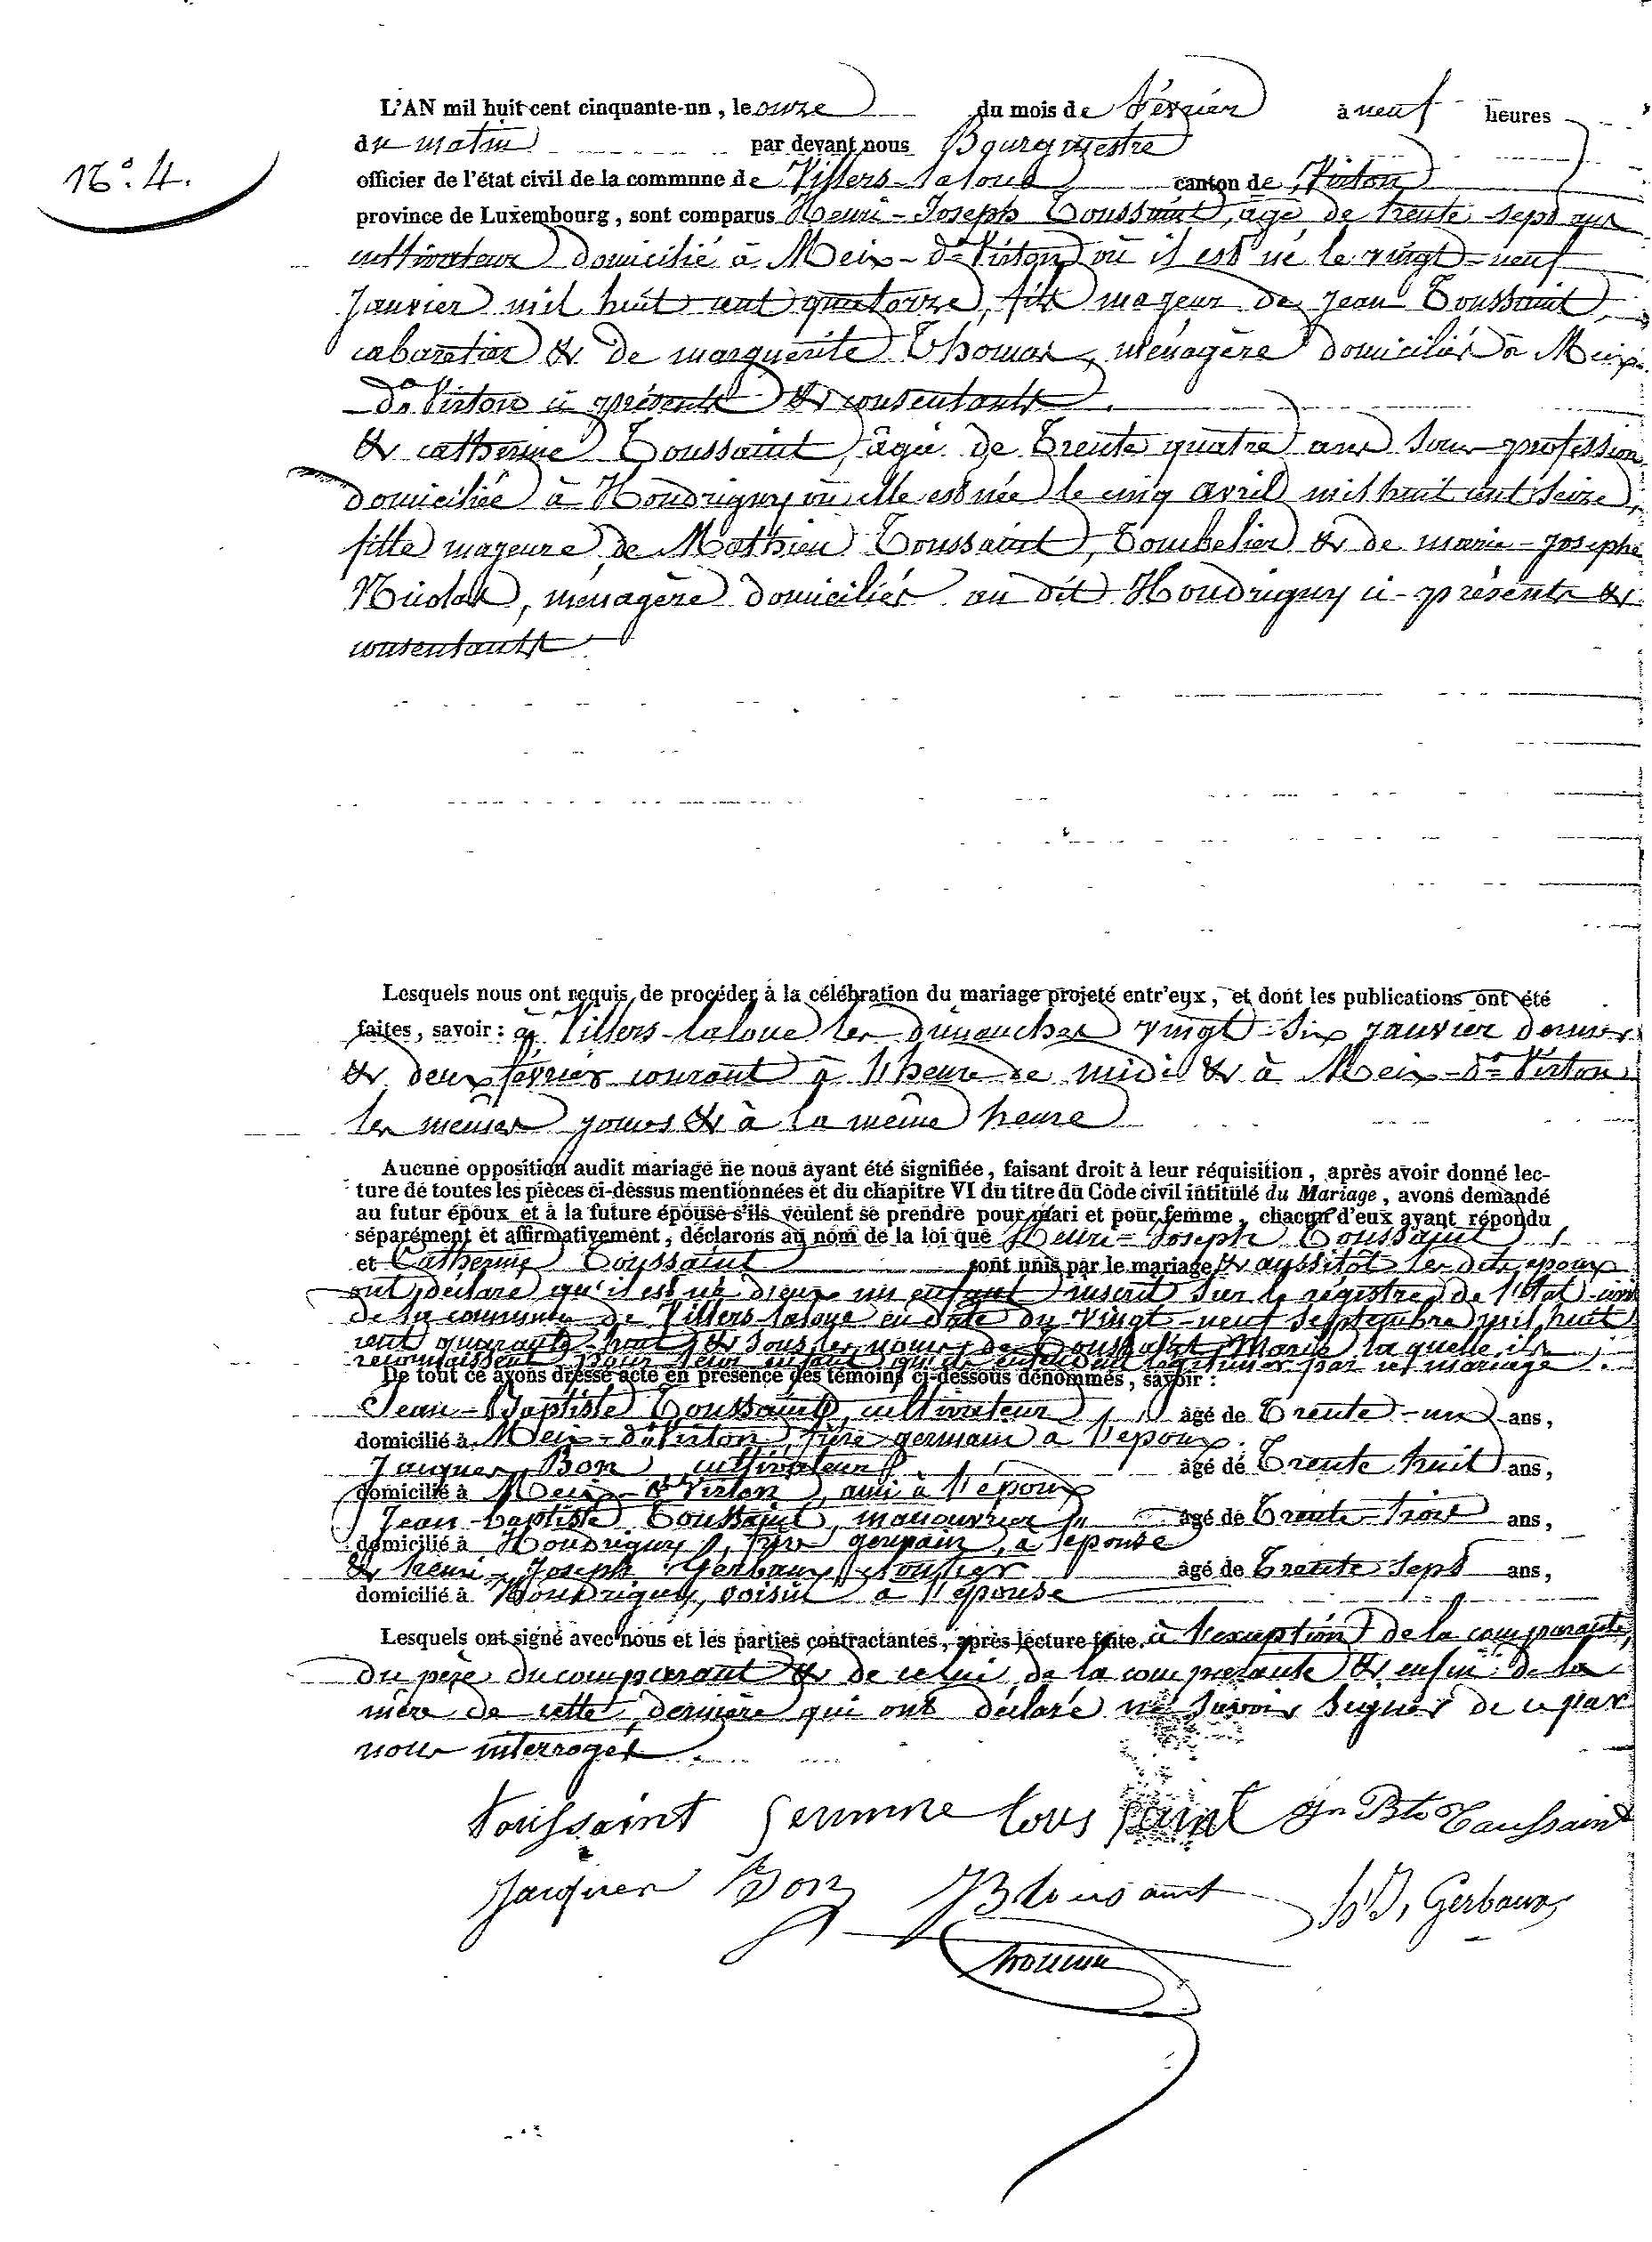 N.° 4.
L'AN mil huit cent cinquante-un, le onze du mois de février à neuf heures
du matin par devant nous Bourgmestre
officier de l'état civil de la commune de Villers-laloue canton de Virton
province de Luxembourg, sont comparus Henri-Joseph Toussaint, âgé de trente-sept ans
cultivateur domicilié à Meix-dt Virton où il est né le vingt-neuf
Janvier mil huit cent quatorze, fils majeur de Jean Toussaint
cabaretier & de marguerite Thomas, ménagère domiciliés à Meix-
dt Virton ci présents & consentants.
& catherine Toussaint, âgée de Trente quatre ans sans profession
domiciliée à Houdrigny où elle est née le cinq avril mil huit cent seize,
fille majeure de Mathieu Toussaint, Tombelier & de marie-Josephe
Nicolas, ménagère domiciliés au dit Houdrigny ci-présents &
consentants.
Lesquels nous ont requis de procéder à la célébration du mariage projeté entr'eux, et dont les publications ont été
faites, savoir: à Villers-laloue les dimanches vingt-six janvier dernier
& deux février courant à l'heure de midi & à Meix-dt Virton
les mêmes jours & à la même heure
Aucune opposition audit mariage ne nous ayant été signifiée, faisant droit à leur réquisition, après avoir donné lec-
ture de toutes les pièces ci-dessus mentionnées et du chapitre VI du titre du Code civil intitulé du Mariage, avons demandé
au futur époux et à la future épouse s'ils veulent se prendre pour mari et pour femme, chacun d'eux ayant répondu
séparément et affirmativement, déclarons au nom de la loi que Henri-Joseph Toussaint
et Catherine Toussaint sont unis par le mariage & aussitôt les dits époux
ont déclaré qu'il est né d'eux un enfant inscrit sur le régistre de l'état-civil
de la commune de Villers laloue en date du vingt-neuf septembre mil huit
cent quarante-huit & sous les noms de Toussaint Marie laquelle ils
reconnaissent pour leur enfant qu'ils entendent légitimer par ce mariage.
De tout ce avons dressé acte en présence des témoins ci-dessous dénommés, savoir:
Jean-Baptiste Toussaint, cultivateur âgé de Trente-un ans,
domicilié à Meix-dt Virton, frère germain à l'époux.
Jacques Bon, cultivateur âgé de Trente huit ans,
domicilié à Meix-dt Virton, ami à l'époux
Jean-baptiste Toussaint, manouvrier âgé de Trente-trois ans,
domicilié à Houdrigny, frère germain, à l'épouse
& henri-Joseph Gerbaux, cloutier âgé de Trente-sept ans,
domicilié à Houdrigny, voisin à l'épouse
Lesquels ont signé avec nous et les parties contractantes, après lecture faite. à l'exception de la comparante,
du père du comparant & de celui de la comparante & enfin de la
mère de cette dernière qui ont déclaré ne savoir signer de ce par
nous interrogés.
toussaint femme toussaint Jn Bte Toussaint
Jacques Bon JB tousaint H J, Gerbaux